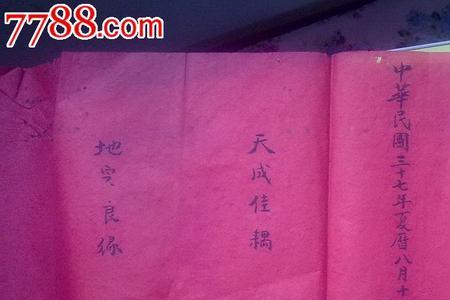 7788.com
中華民國三十七年夏曆八月十
天成佳耦
地㝎良緣